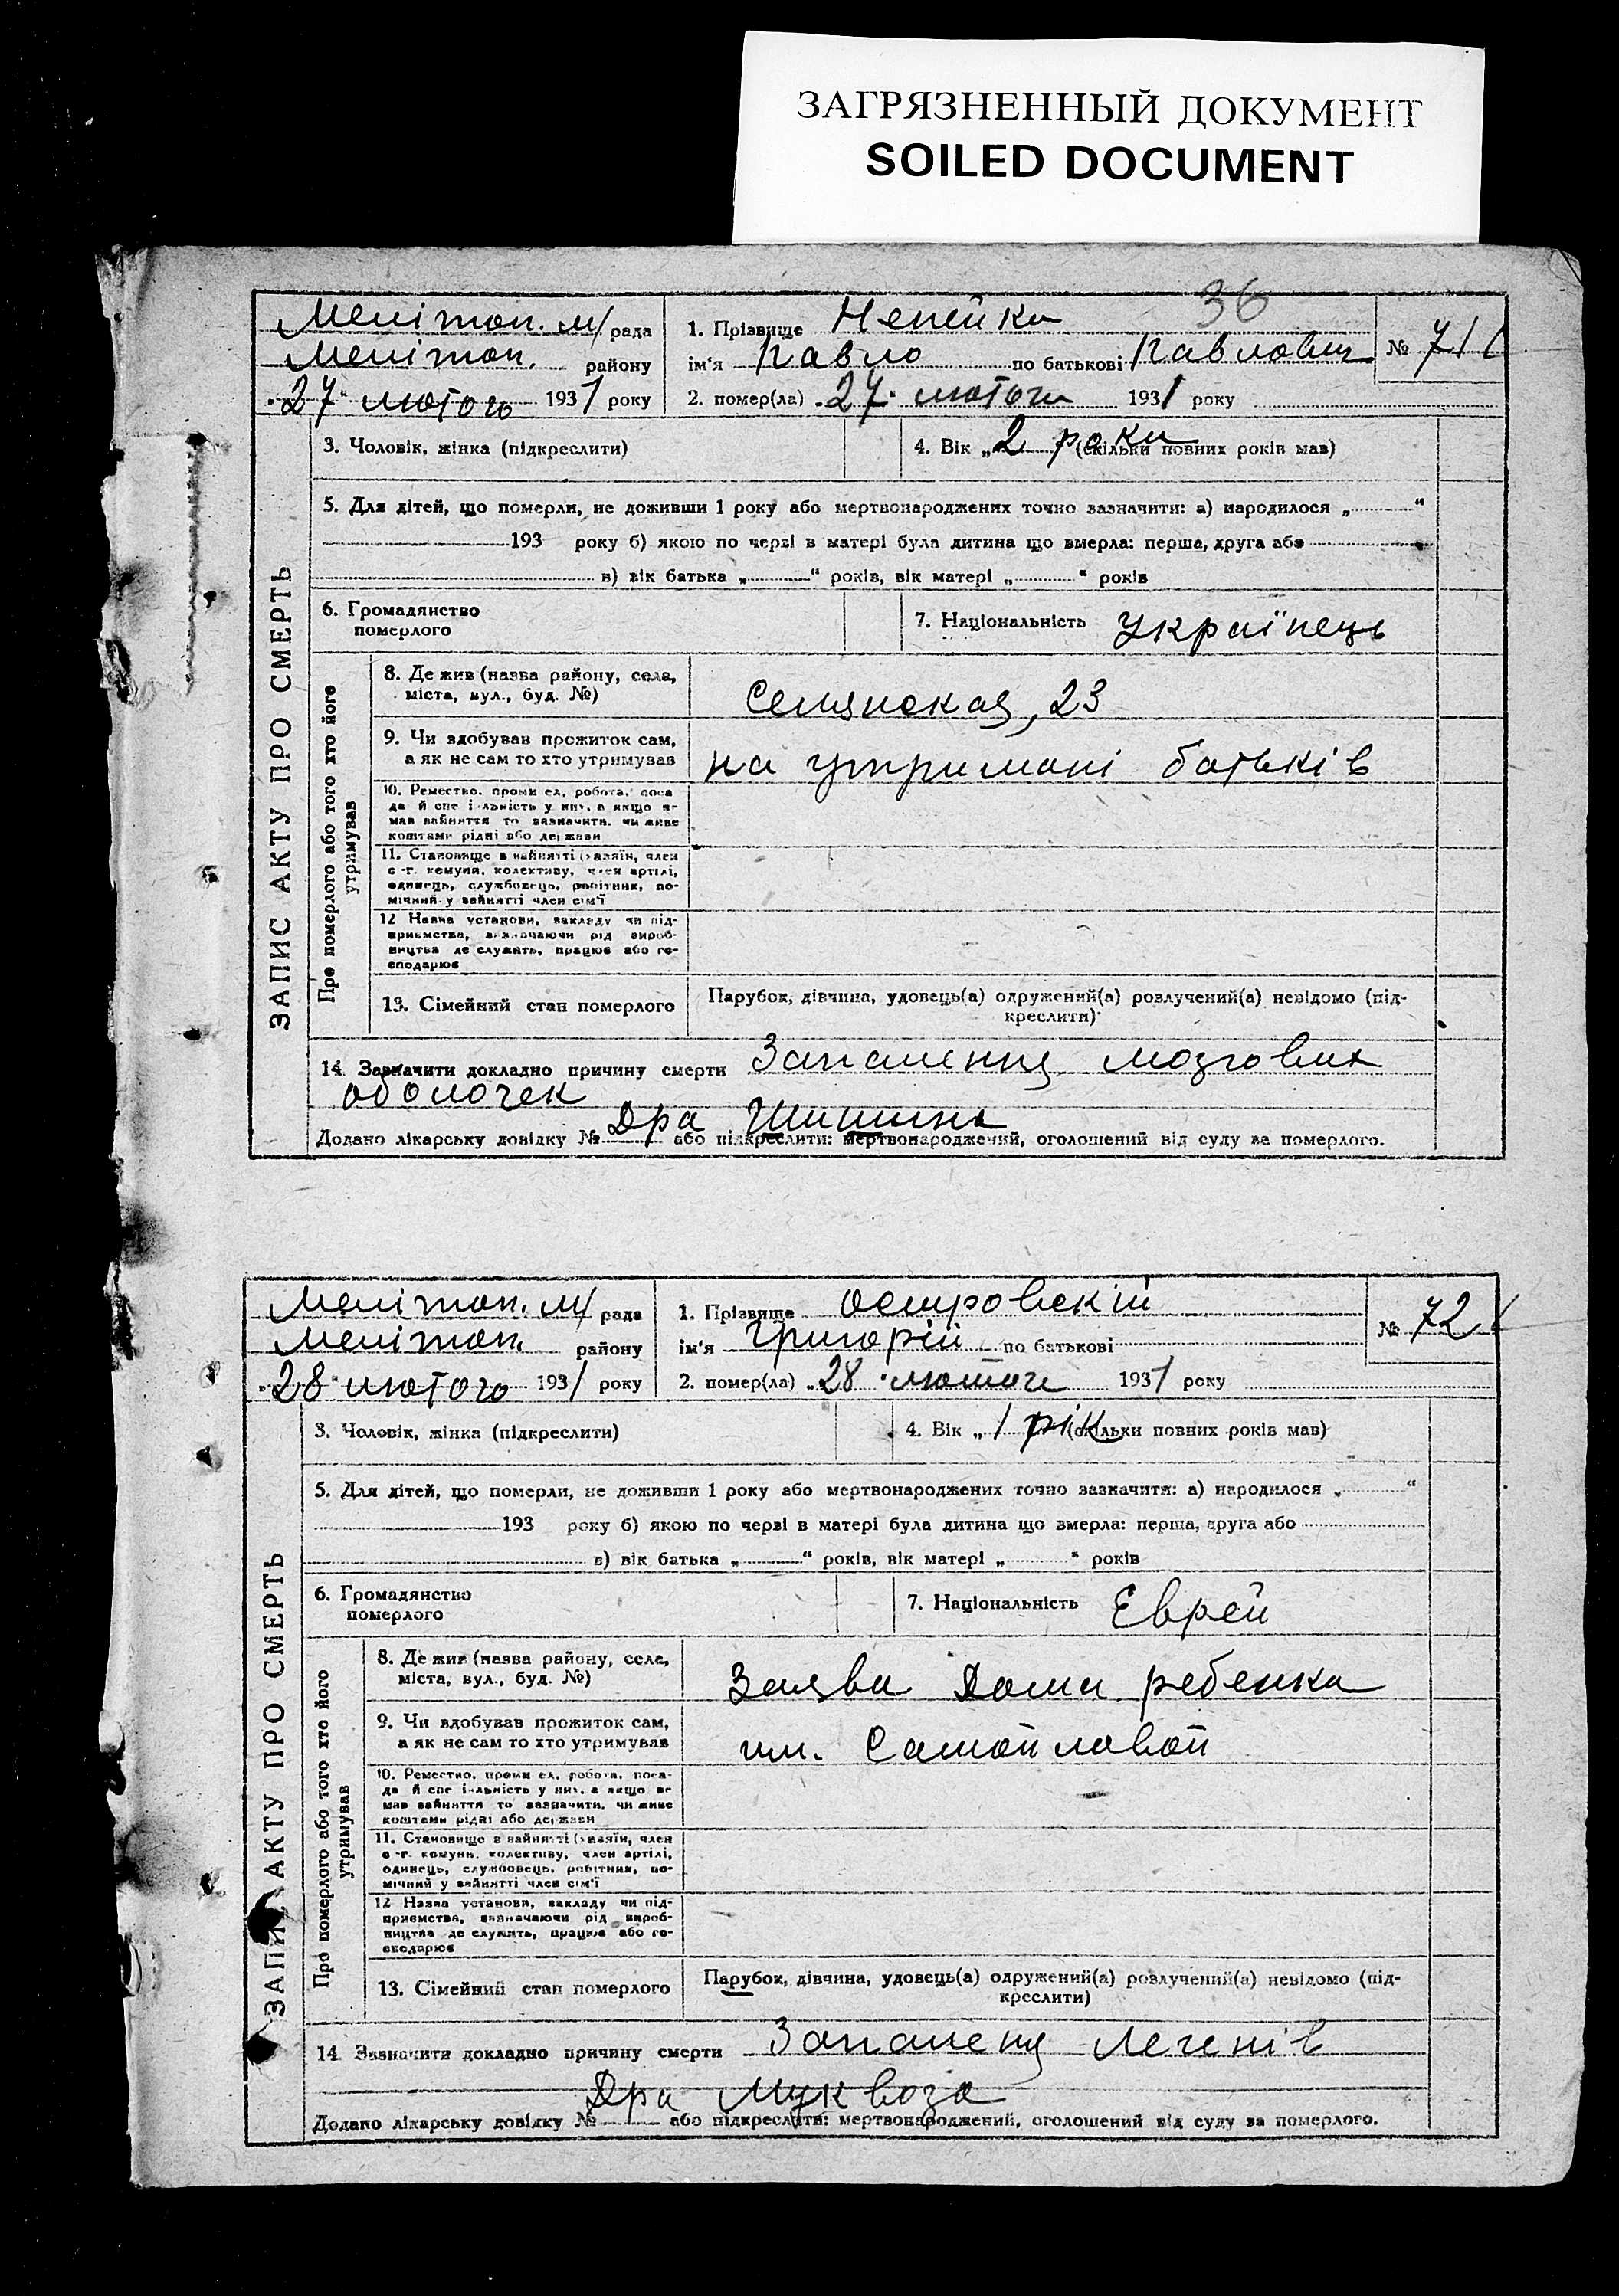 ЗАГРЯЗНЕННЫЙ ДОКУМЕНТ
SOILED DOCUMENT
36
Мелітоп. м/рада
Мелітоп. району
„27“ лютого 1931 року
1. Прізвище Непейко
ім'я Павло по батькові Павлович
2. помер(ла) „27“ лютого 1931 року
№ 71
ЗАПИС АКТУ ПРО СМЕРТЬ
3. Чоловік, жінка (підкреслити)
4. Вік „2 роки (скільки повних років мав)
5. Для дітей, що померли, не доживши 1 року або мертвонароджених точно зазначити: а) народилося „ “
193 року б) якою по черзі в матері була дитина що вмерла: перша, друга або
в) вік батька „ “ років, вік матері „ “ років
6. Громадянство
померлого
7. Національність Українець
Про померлого або того хто його
утримував
8. Де жив (назва району, села,
міста, вул., буд. №)
Селянская, 23
9. Чи здобував прожиток сам,
а як не сам то хто утримував
на утримані батьків
10. Ремество, проми ел, робота, поса
да й спе і льність у них, а якщо не
мав вайняття то зазначити, чи живе
коштами рідні або держави
11. Становище в вайнятті (хазяїн, член
с-г. комуни, колективу, член артілі,
одинець, службовець, робітник, по-
мічний у вайнятті член сім'ї
12 Назва установи, закладу чи під-
приємства, визначаючи рід вироб-
ництва де служить, працює або го-
сподарює
13. Сімейний стан померлого
Парубок, дівчина, удовець(а) одружений(а) розлучений(а) невідомо (під-
креслити)
14. Зазначити докладно причину смерти Запалення мозгових
оболочек
Дра Шишина
Додано лікарську довідку № або підкреслити: мертвонароджений, оголошений від суду за померлого.
Мелітоп. м/рада
Мелітоп. району
„28“ лютого 1931 року
1. Прізвище Островскій
ім'я Григорій по батькові
2. помер(ла) „28“ лютого 1931 року
№ 72
ЗАПИС АКТУ ПРО СМЕРТЬ
3. Чоловік, жінка (підкреслити)
4. Вік „1 рік (скільки повних років мав)
5. Для дітей, що померли, не доживши 1 року або мертвонароджених точно зазначити: а) народилося „ “
193 року б) якою по черзі в матері була дитина що вмерла: перша, друга або
в) вік батька „ “ років, вік матері „ “ років
6. Громадянство
померлого
7. Національність Еврей
Про померлого або того хто його
утримував
8. Де жив (назва району, села,
міста, вул., буд. №)
Заява Дома ребенка
9. Чи здобував прожиток сам,
а як не сам то хто утримував
им. Самойловой
10. Ремество, проми ел, робота, поса-
да й спе іальність у них, а якщо не
мав вайняття то зазначити, чи живе
коштами рідні або держави
11. Становище в вайнятті (хазяїн, член
с-г. комуни, колективу, член артілі,
одинець, службовець, робітник, по-
мічний у вайнятті член сім'ї
12 Назва установи, закладу чи під-
приємства, визначаючи рід вироб-
ництва де служить, працює або го-
сподарює
13. Сімейний стан померлого
Парубок, дівчина, удовець(а) одружений(а) розлучений(а) невідомо (під-
креслити)
14. Зазначити докладно причину смерти Запаленя Легенів
Дра Муквоза
Додано лікарську довідку № або підкреслити: мертвонароджений, оголошений від суду за померлого.